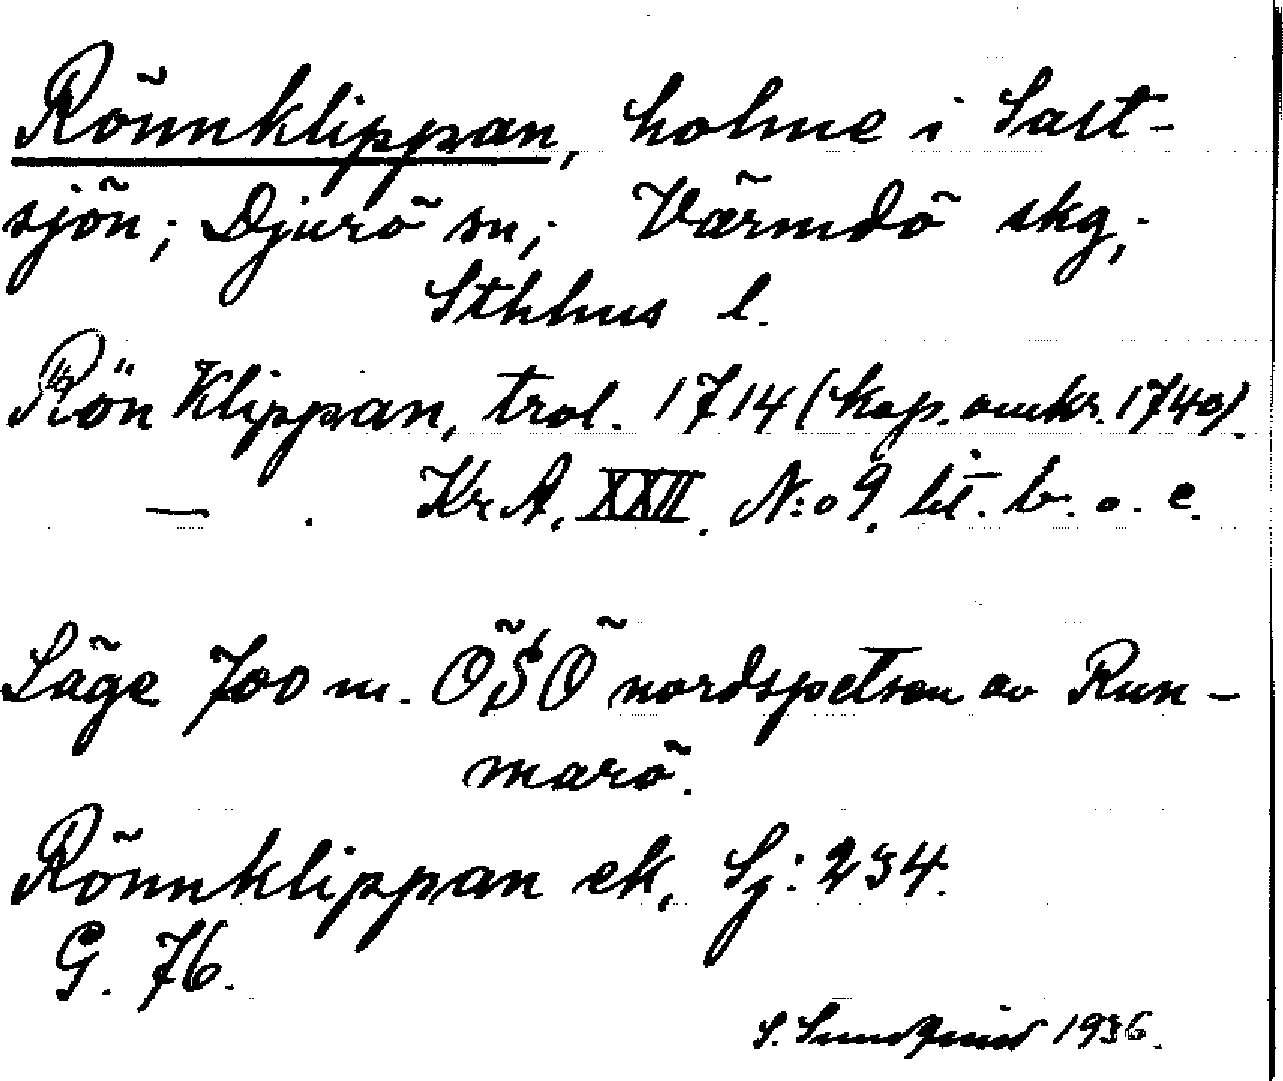 Rönnklippan, holme i Salt-
sjön; Djurö sn; Värmdö skg;
Sthlms l.
Rön Klippan, trol. 1714 (kop. omkr. 1740).
— . Kr A. XXII. N:o 9. lit. b. o. c.
Läge 700 m. ÖSÖ nordspetsen av Run-
marö.
Rönnklippan ek, Sj: 234.
G. 76.
S. Sundqvist 1936.